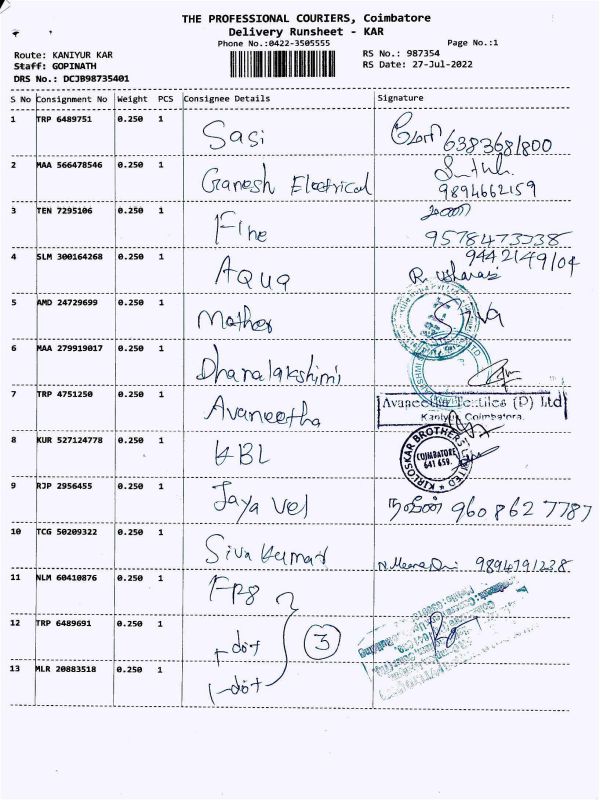 THE PROFESSIONAL COURIERS, Coimbatore
Delivery Runsheet - KAR
Phone No.:0422-3505555
Page No.:1
Route: KANIYUR KAR
RS No.: 987354
Staff: GOPINATH
RS Date: 27-Jul-2022
DRS No.: DCJB98735401
S No Consignment No Weight PCS Consignee Details Signature
1 TRP 6489751 0.250 1 Sasi 6383681800
2 MAA 566478546 0.250 1 Ganesh Electrical
9894662159
3 TEN 7295106 0.250 1 Fine
9578473338
4 SLM 300164268 0.250 1 Aqua 9442149104
5 AMD 24729699 0.250 1 Mother Siva
6 MAA 279919017 0.250 1 Dhanalakshimi
7 TRP 4751250 0.250 1 Avaneetha Avaneetha Textiles (P) Ltd
Kaniyur, Coimbatore.
8 KUR 527124778 0.250 1 KBL KIRLOSKAR BROTHERS LIMITED
COIMBATORE
641 659.
9 RJP 2956455 0.250 1 Jaya Vel 960 862 7787
10 TCG 50209322 0.250 1 Siva Kumar 9894791238
11 NLM 60410876 0.250 1
12 TRP 6489691 0.250 1 dot 3
13 MLR 20883518 0.250 1 dot